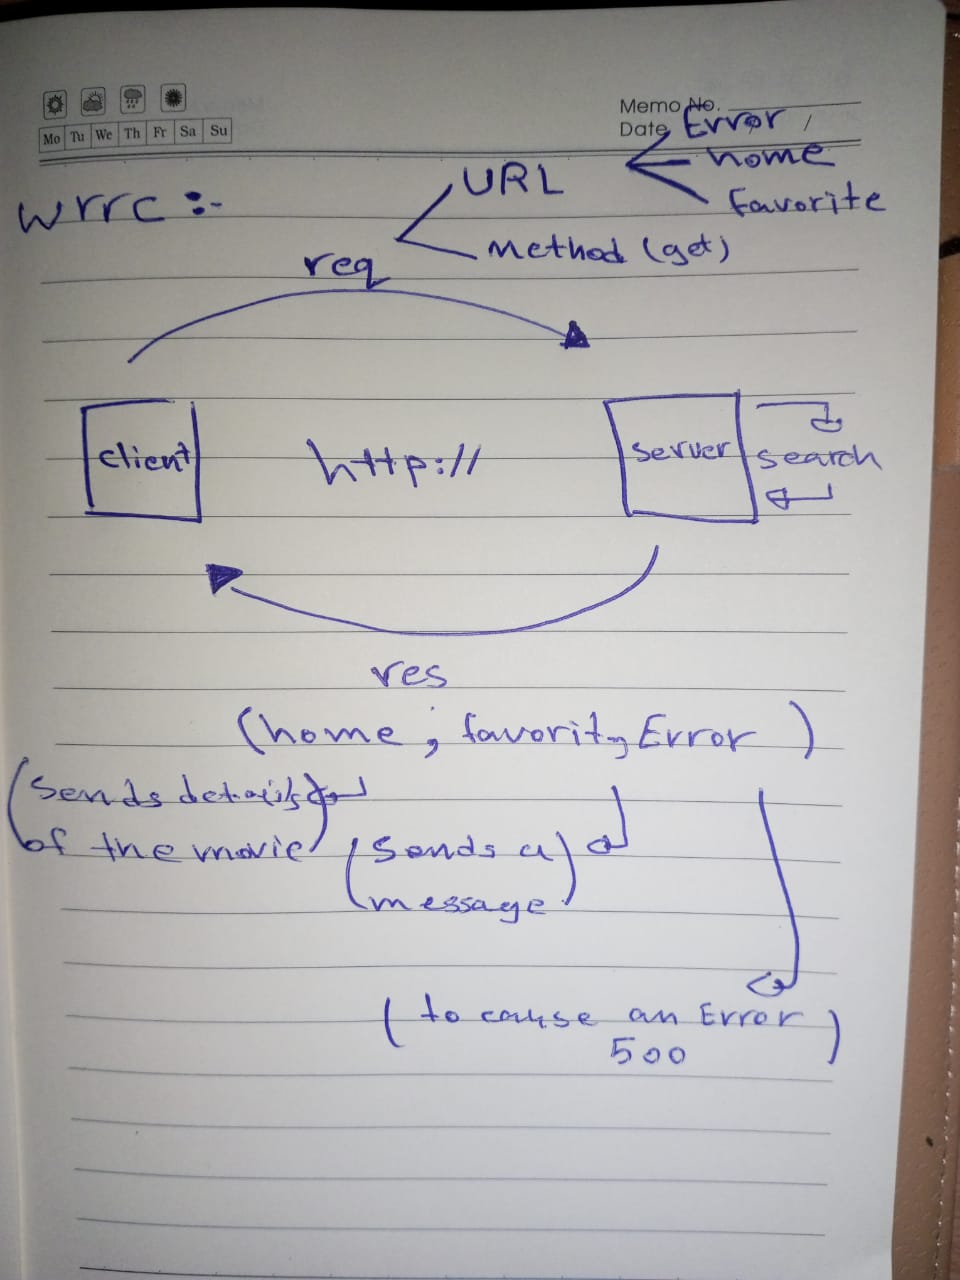 Memo No.
Date / Error
Mo Tu We Th Fr Sa Su
home
URL
Favorite
wrrc :-
Method (get)
req
client
http://
server
search
res
(home, favority Error)
(Sends details
of the movie)
(Sends a
message)
(to cause an Error
500)